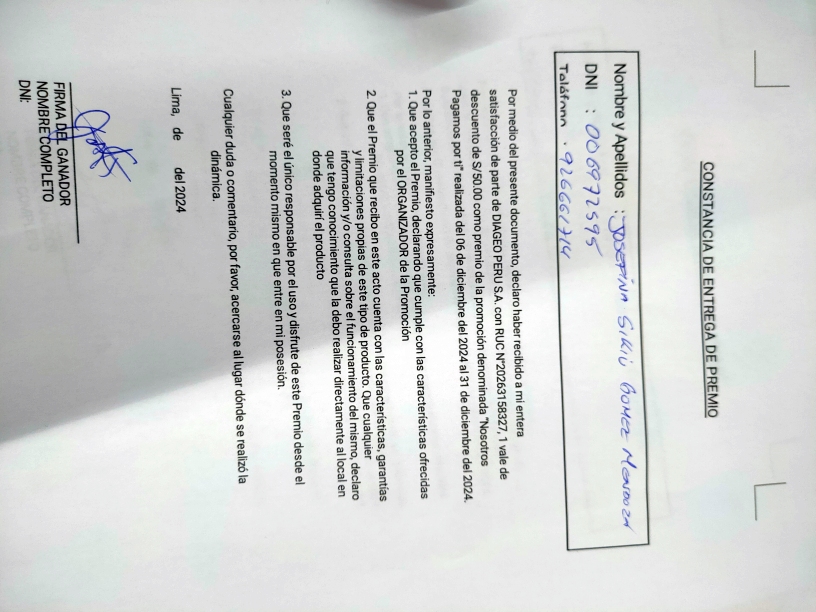 CONSTANCIA DE ENTREGA DE PREMIO
Nombre y Apellidos : JOSEFINA SIKIÚ GOMEZ MENDOZA
DNI : 006972595
Teléfono . 926661714
Por medio del presente documento, declaro haber recibido a mi entera
satisfacción de parte de DIAGEO PERU S.A. con RUC N°20263158327, 1 vale de
descuento de S/50.00 como premio de la promoción denominada "Nosotros
Pagamos por ti" realizada del 06 de diciembre del 2024 al 31 de diciembre del 2024.
Por lo anterior, manifiesto expresamente:
1. Que acepto el Premio, declarando que cumple con las características ofrecidas
por el ORGANIZADOR de la Promoción
2. Que el Premio que recibo en este acto cuenta con las características, garantías
y limitaciones propias de este tipo de producto. Que cualquier
información y/o consulta sobre el funcionamiento del mismo, declaro
que tengo conocimiento que la debo realizar directamente al local en
donde adquirí el producto
3. Que seré el único responsable por el uso y disfrute de este Premio desde el
momento mismo en que entre en mi posesión.
Cualquier duda o comentario, por favor, acercarse al lugar dónde se realizó la
dinámica.
Lima, de del 2024
FIRMA DEL GANADOR
NOMBRE COMPLETO
DNI: